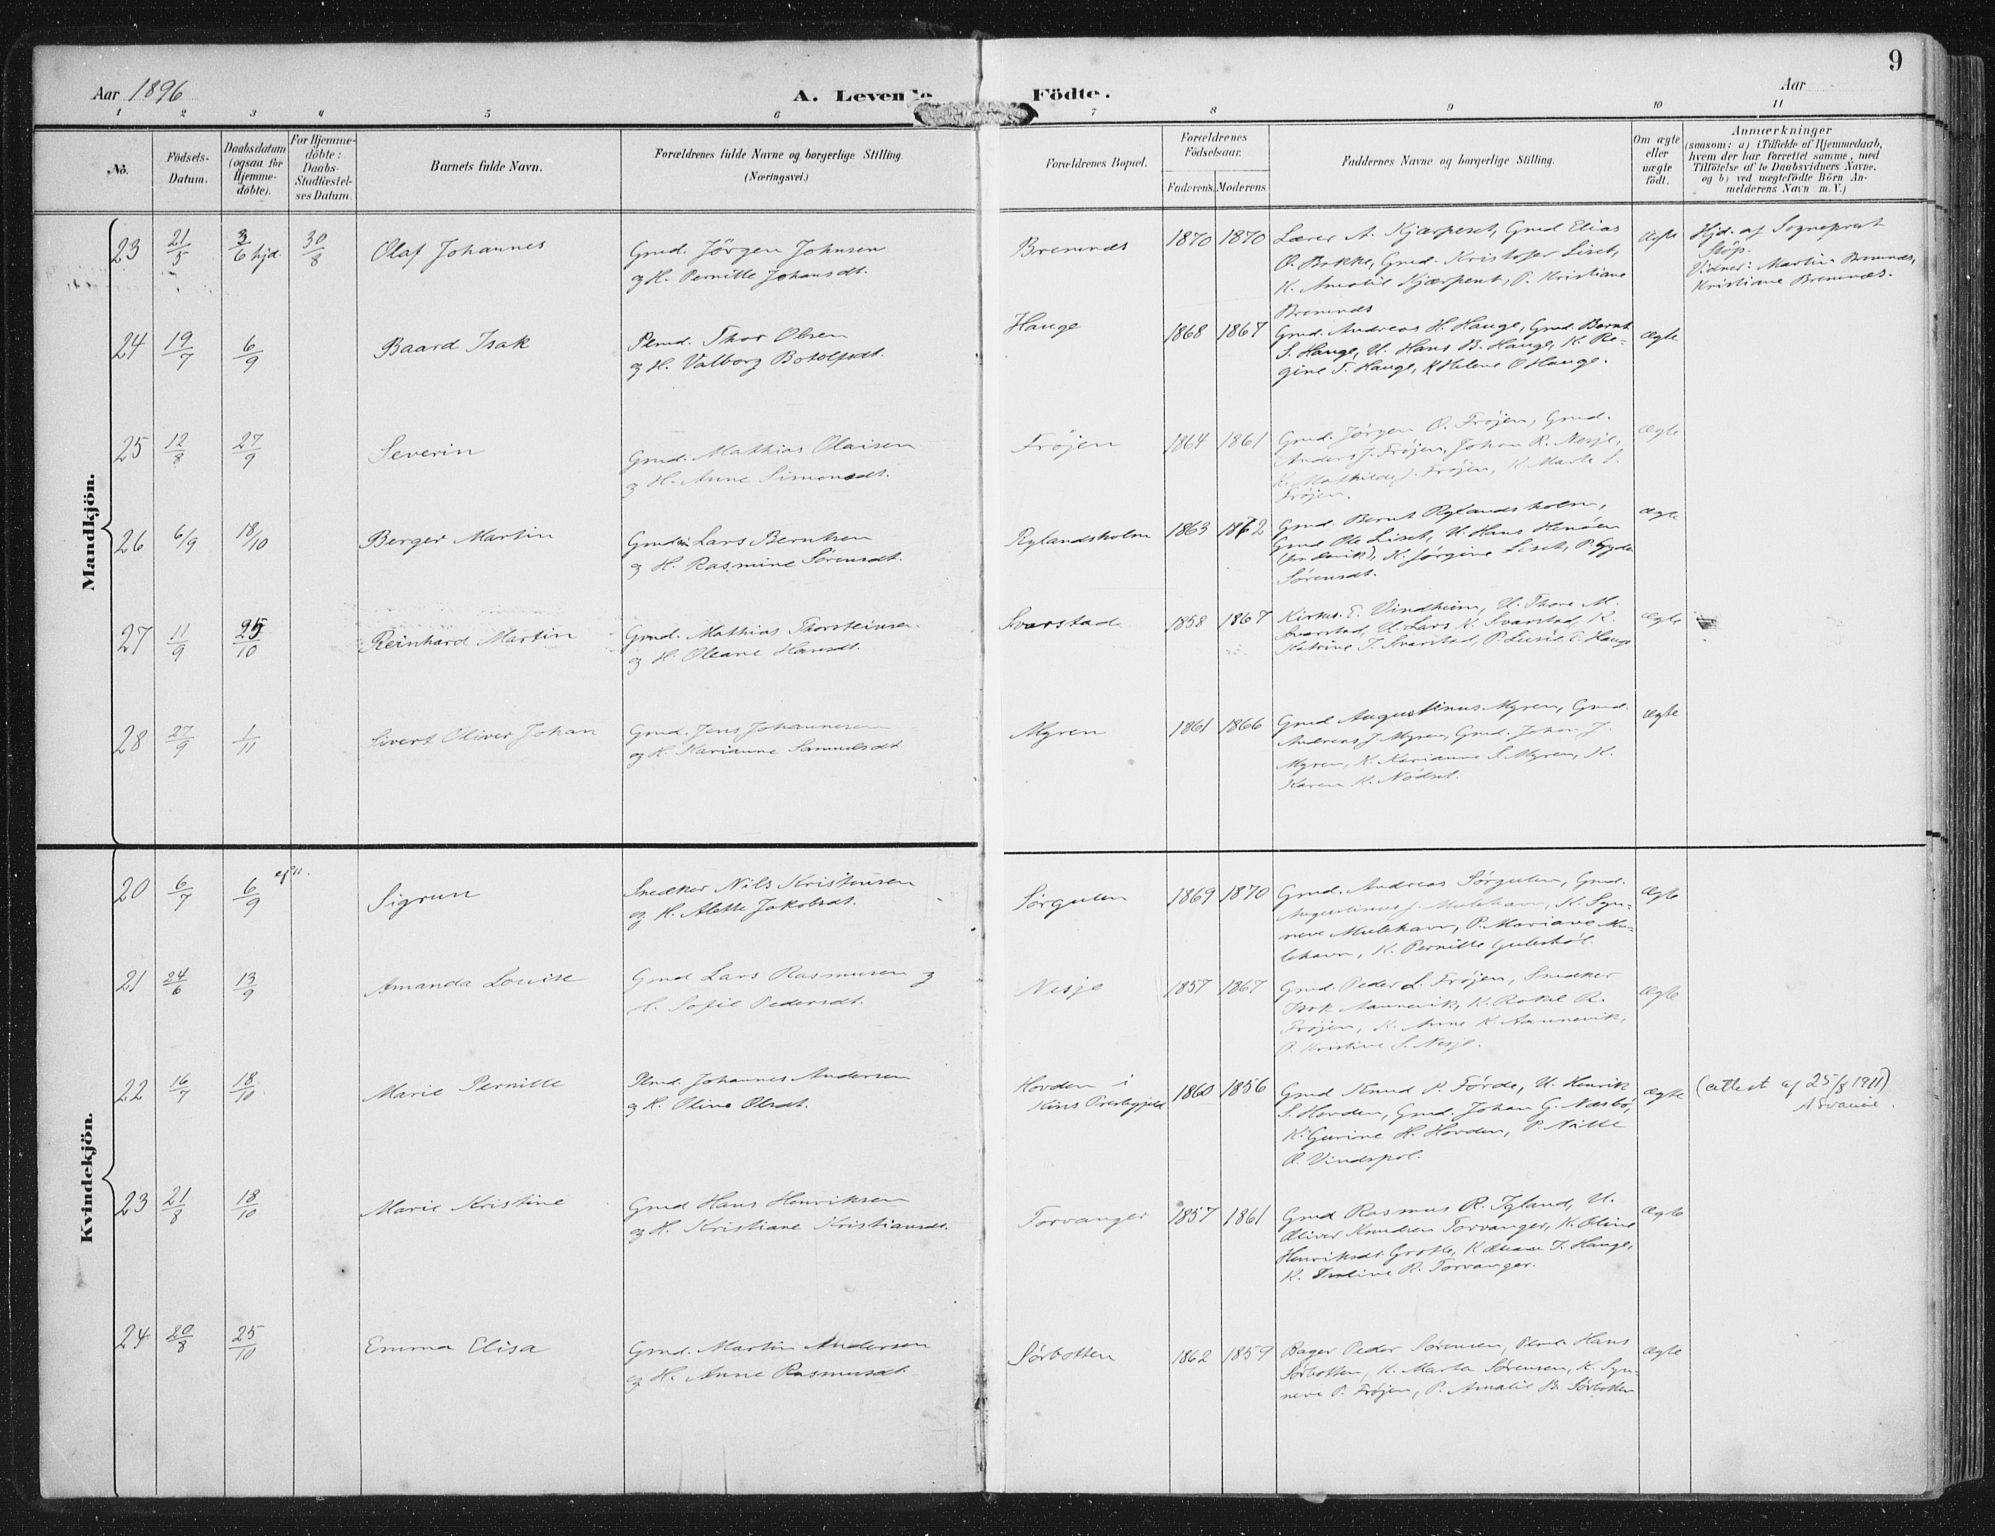 9
Aar 1896
A. Levende Födte.
Aar
1 2 3 4 5 6 7 8 9 10 11
No.
Födsels-
Datum.
Daabsdatum
(ogsaa for
Hjemme-
döbte).
For Hjemme-
döbte:
Daabs-
Stadfæstel-
ses Datum.
Barnets fulde Navn.
Forældrenes fulde Navne og borgerlige Stilling
(Næringsvei.)
Forældrenes Bopæl.
Forældrenes
Födselsaar.
Faderens. Moderens.
Faddernes Navne og borgerlige Stilling.
Om ægte
eller
uægte
födt.
Anmærkninger
(saasom: a) i Tilfælde af Hjemmedaab,
hvem der har forrettet samme, med
Tilföielse af to Daabsvidners Navne.
og b) ved uægtefödte Börn An-
melderens Navn m. V.)
Mandkjön.
23 21/5 3/6 hjd. 30/8 Olaf Johannes
Gmd. Jörgen Johnsen
og H. Pernille Johansdt.
Bremnes 1870 1870
Lærer A. Kjærpeset, Gmd Elias
O. Bakke, Gmd. Kristofer Liset,
K. Amalie Kjærpeset, P. Kristiane
Bremnes
Ægte
Hjd. af Sogneprest
Støp.
Vidner: Martin Bremnes,
Kristiane Bremnes.
24 19/7 6/9 Baard Isak
Plmd. Thor Olsen
og H. Valborg Botolfsdt.
Hauge 1868 1867
Gmd. Andreas H. Hauge, Gmd. Bernt
S. Hauge, U. Hans B. Hauge, K. Re-
gine T. Hauge, K Helene O Hauge.
Ægte
25 12/8 27/9 Severin
Gmd. Mathias Olaisen
og H. Anne Simonsdt.
Fröjen 1864 1861
Gmd. Jörgen O. Fröjen, Gmd.
Anders J. Fröjen, Johan R. Nesje,
K. Mathilde J. Fröjen, K. Marte S.
Fröjen.
Ægte
26 6/9 18/10 Berger Martin
Gmd Lars Berntsen
og H. Rasmine Sörensdt.
Rylandsholm 1863 1862
Gmd. Bernt Rylandsholm,
Gmd Ole Liset, U. Hans Henöen
K. Jörgine Liset, P. Gyda
Sörensdt.
Ægte
27 11/9 25/10 Reinhard Martin
Gmd. Mathias Thorsteinsen
og H. Oleane Hansdt.
Svarstad 1858 1867
Kirkes. E. Vindheim, U. Thore M.
Svarstad, U. Lars K. Svarstad, K.
Katrine J. Svarstad, P. Lusie E. Hauge
Ægte
28 27/9 1/11 Sivert Oliver Johan
Gmd. Jens Johannesen
og H. Karianne Samuelsdt.
Myren 1861 1866
Gmd Augustinus Myren, Gmd.
Andreas J Myren, Gmd. Johan J.
Myren, K. Karianne S. Myren, K.
Karen K. Nödset.
Ægte
Kvindekjön.
20 6/7 6/9 Sigrun
Snedker Nils Kristensen
og H. Alette Jakobsdt.
Sörgulen 1869 1870
Gmd. Andreas Sörgulen, Gmd.
Augustinus J. Mulehavn, K. Syn-
neve Mulehavn, P. Mariane Mu-
lehavn, K. Pernille Guleshöl.
Ægte
21 24/6 13/9 Amanda Lovise
Gmd Lars Rasmusen og
H. Sofie Pedersdt.
Nesje 1857 1867
Gmd. Peder L. Fröjen, Snedker
Isak Aannevik, K. Rakel R.
Fröjen, K. Anne K. Aannevik,
P. Kristine S. Nesje.
Ægte
22 16/7 18/10 Marie Pernille
Plmd. Johannes Andersen
og H. Oline Olsdt.
Hovden i
Kins Prestegjeld 1860 1856
Gmd Knud K. Förde, U. Henrik
S. Hovden, Gmd. Johan G. Næsbö,
K. Gurine H. Hovden, P. Nille
O. Vindspol.
Ægte
(attest af 25/8 1911)
A Svanöe.
23 21/8 18/10 Marie Kristine
Gmd Hans Henriksen
og H. Kristiane Kristiansdt.
Torvanger 1857 1861
Gmd Rasmus R. Igland, U.
Oliver Knudsen Torvanger, K. Oline
Henriksdt. Grotle, K Oleane J. Hauge,
K. R. Torvanger.
Ægte
24 20/8 25/10 Emma Elisa
Gmd. Martin Andersen
og H. Anne Rasmusdt.
Sörbotten 1862 1859
Bager Peder Sörensen, Plmd. Hans
Sörbotten, K. Marta Sörensen, K. Syn-
neve P. Fröjen, P. Amalie B. Sörbotten
Ægte